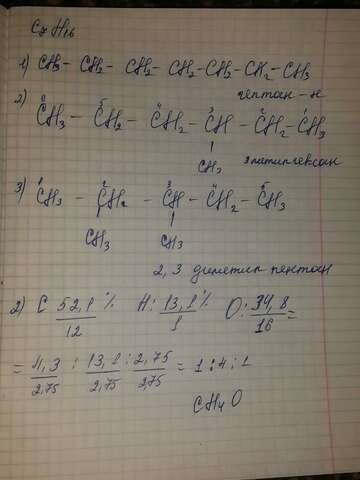 C₇H₁₆
1) CH₃ - CH₂ - CH₂ - CH₂ - CH₂ - CH₂ - CH₃
гептан - н
2) ⁶CH₃ - ⁵CH₂ - ⁴CH₂ - ³CH - ²CH₂ - ¹CH₃
CH₃
3 метилгексан
3) ¹CH₃ - ²CH₂ - ³CH - ⁴CH₂ - ⁵CH₃
CH₃ CH₃
2,3 диметил пентан
2) C 52,1 % / 12 H: 13,1 % / 1 O: 34,8 / 16 =
= 4,3 / 2,75 : 13,1 / 2,75 : 2,75 / 2,75 = 1 : 4 : 1
CH₄O